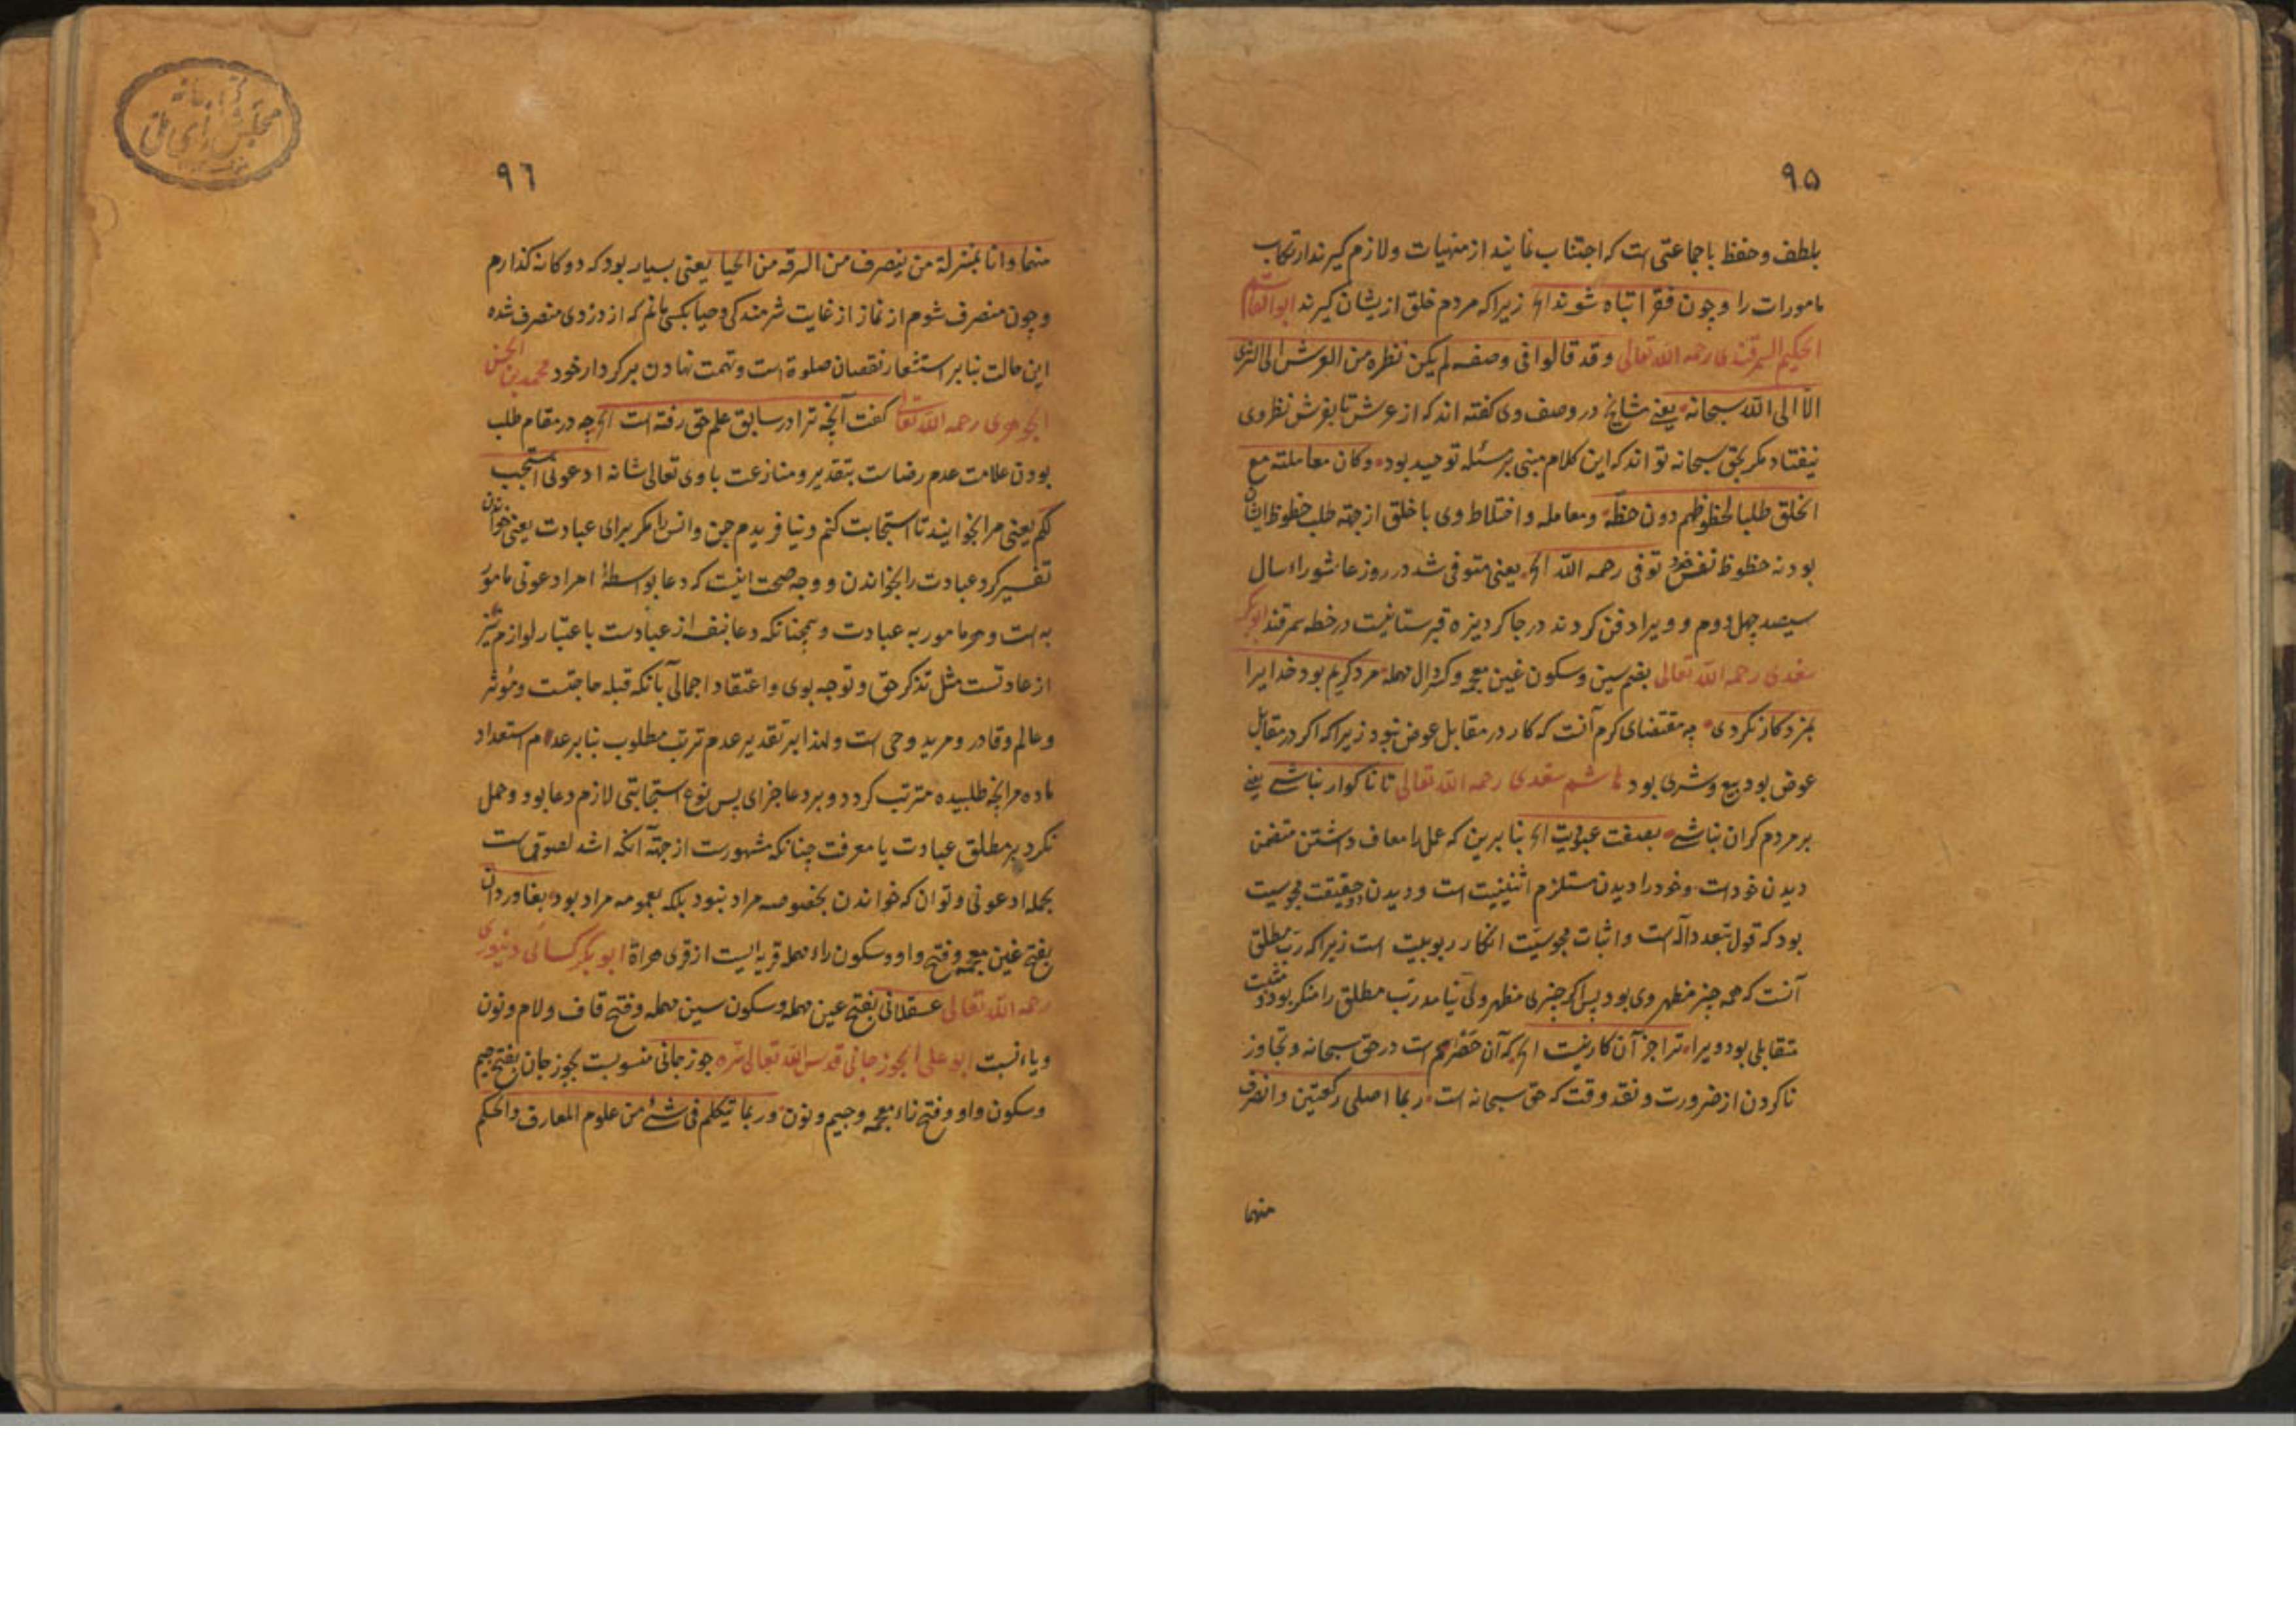 ۹۵
بلطف و حفظ با جماعتی است که اجتناب نمایند از منهیات و لازم گیرند ارتکاب
مامورات را و چون فقرا تباه شوند الخ زیرا که مردم خلق ازیشان گیرند ابوالقاسم
الحکیم السمرقندی رحمه الله تعالی و قد قالوا فی وصفه لم یکن نظره من العرش الی الثری
الا الی الله سبحانه یعنی مشایخ در وصف وی گفته اند که از عرش تا بفرش نظر وی
نیفتاد مکر بحق سبحانه تواند که این کلام مبنی بر مسئله توحید بود و کان معاملته مع
الخلق طلبا لحظوظهم دون حظه و معامله و اختلاط وی با خلق از جهته طلب حظوظ ایشان
بود نه حظوظ نفس خود توفی رحمه الله الخ یعنی متوفی شد در روز عاشورا سال
سیصد چهل و دوم و ویرا دفن کردند در جاکردیزه قبرستانیست در خطه سمرقند ابوبکر
سغدی رحمه الله تعالی بضم سین و سکون غین معجمه و کسر دال مهمله مرد کریم بود خدایرا
بمزد کار نکردی چه مقتضای کرم آنست که کار در مقابل عوض نبود زیرا که اکر در مقابل
عوض بود بیع و شری بود هاشم سغدی رحمه الله تعالی تا ناکوار نباشی یعنی
بر مردم کران نباشی بصفت عبودیت الخ بنا برین که عمل را معاف داشتن متضمن
دیدن خود است و خود را دیدن مستلزم اثنینیت است و دیدن دو حقیقت مجوسیت
بود که قول بتعدد اله است و اثبات مجوسیت انکار ربوبیت است زیرا که رب مطلق
آنست که همه چیز مظهر وی بود پس اکر چیزی مظهر وی نیامد رب مطلق را منکر بود و مثبت
متقابلی بود ویرا ترا جز آن کار نیست الخ که آن حق است در حق سبحانه و تجاوز
ناکردن از ضرورت و نقد وقت که حق سبحانه است ربما اصلی رکعتین و انصرف
منهما
۹٦
منهما و انا بمنزلة من ینصرف من السرقه من الحیا یعنی بسیار بود که دوکانه کذارم
و چون منصرف شوم از نماز از غایت شرمندکی و حیا بکسی مانم که از دزدی منصرف شده
این حالت بنابر استشعار نقصان صلوة است و تهمت نهادن بر کردار خود محمد بن الحسن
الجوهری رحمه الله تعالی کفت آنچه ترا در سابق علم حق رفته است الخ چه در مقام طلب
بودن علامت عدم رضاست بتقدیر و منازعت با وی تعالی شانه ادعونی استجب
لکم یعنی مرا بخوانید تا استجابت کنم و نیافریدم جن و انس را مکر برای عبادت یعنی خواندن
تفسیر کرد عبادت را بخواندن و وجه صحت اینست که دعا بواسطهٔ امر ادعونی مامور
به است و هر مامور به عبادت و همچنانکه دعا بنفسه از عبادت باعتبار لوازم نیز
از عادتست مثل تذکر حق و توجه بوی و اعتقاد اجمالی بآنکه قبله حاجتست و مؤثر
و عالم و قادر و مرید و حی است و لهذا بر تقدیر عدم ترتب مطلوب بنابر عدم استعداد
ماده مر آنچه طلبیده مترتب کردد و بر دعا جزای پس نوع استجابتی لازم دعا بود و حمل
نکرد بر مطلق عبادت یا معرفت چنانکه مشهورست از جهته آنکه اشد لصوقی است
بجمله ادعونی و توان که خواندن بخصوصه مراد نبود بلکه بعمومه مراد بود بغاوردان
بفتح غین معجمه و فتح واو و سکون راء مهمله قریه ایست از قری هراة ابوبکر کسائی دینوری
رحمه الله تعالی عسقلانی بفتح عین مهمله و سکون سین مهمله و فتح قاف و لام و نون
و یاء نسبت ابو علی الجوزجانی قدس الله تعالی سره جوزجانی منسوبست بجوزجان بفتح جیم
و سکون واو و فتح زاء معجمه و جیم و نون و ربما یتکلم فی شئ من علوم المعارف و الحکم